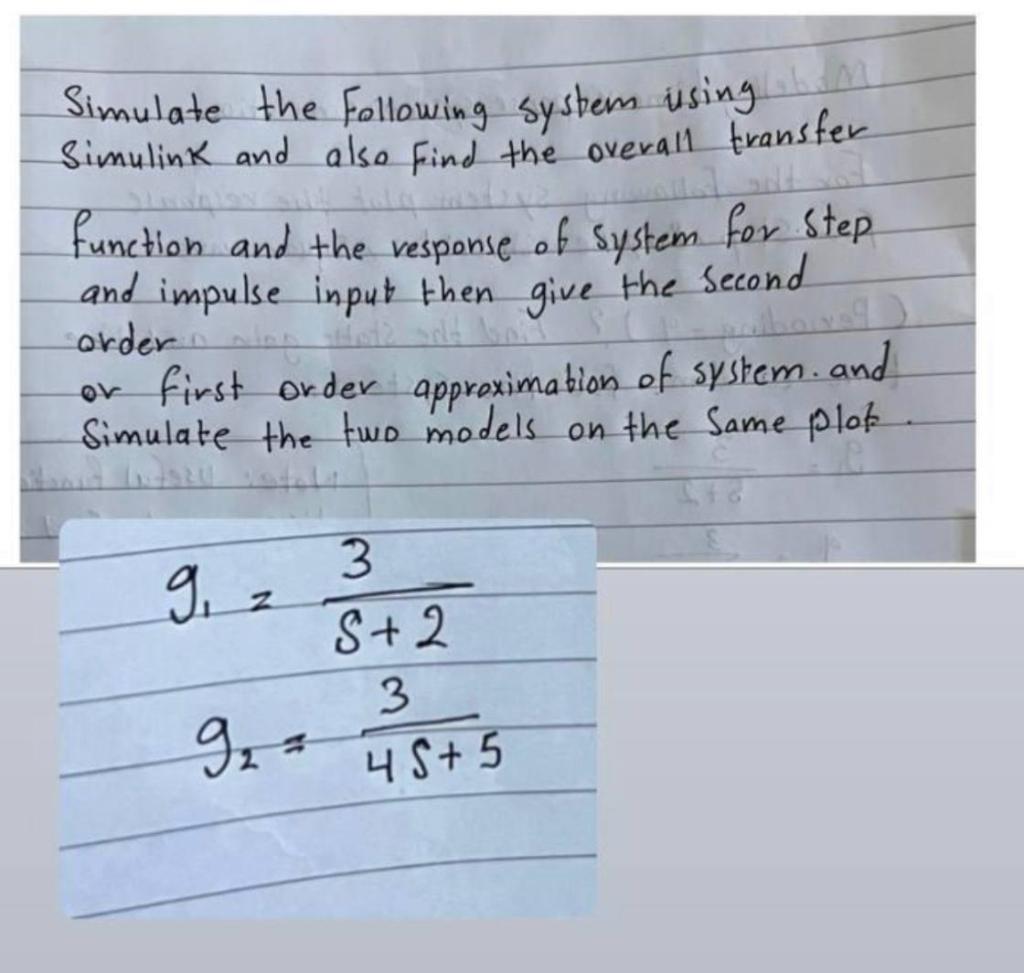 Simulate the Following system using
Simulink and also Find the overall transfer
function and the response of system for step
and impulse input then give the second
order
or first order approximation of system. and
Simulate the two models on the same plot.
g₁ = 3/(S+2)
g₂ = 3/(4S+5)